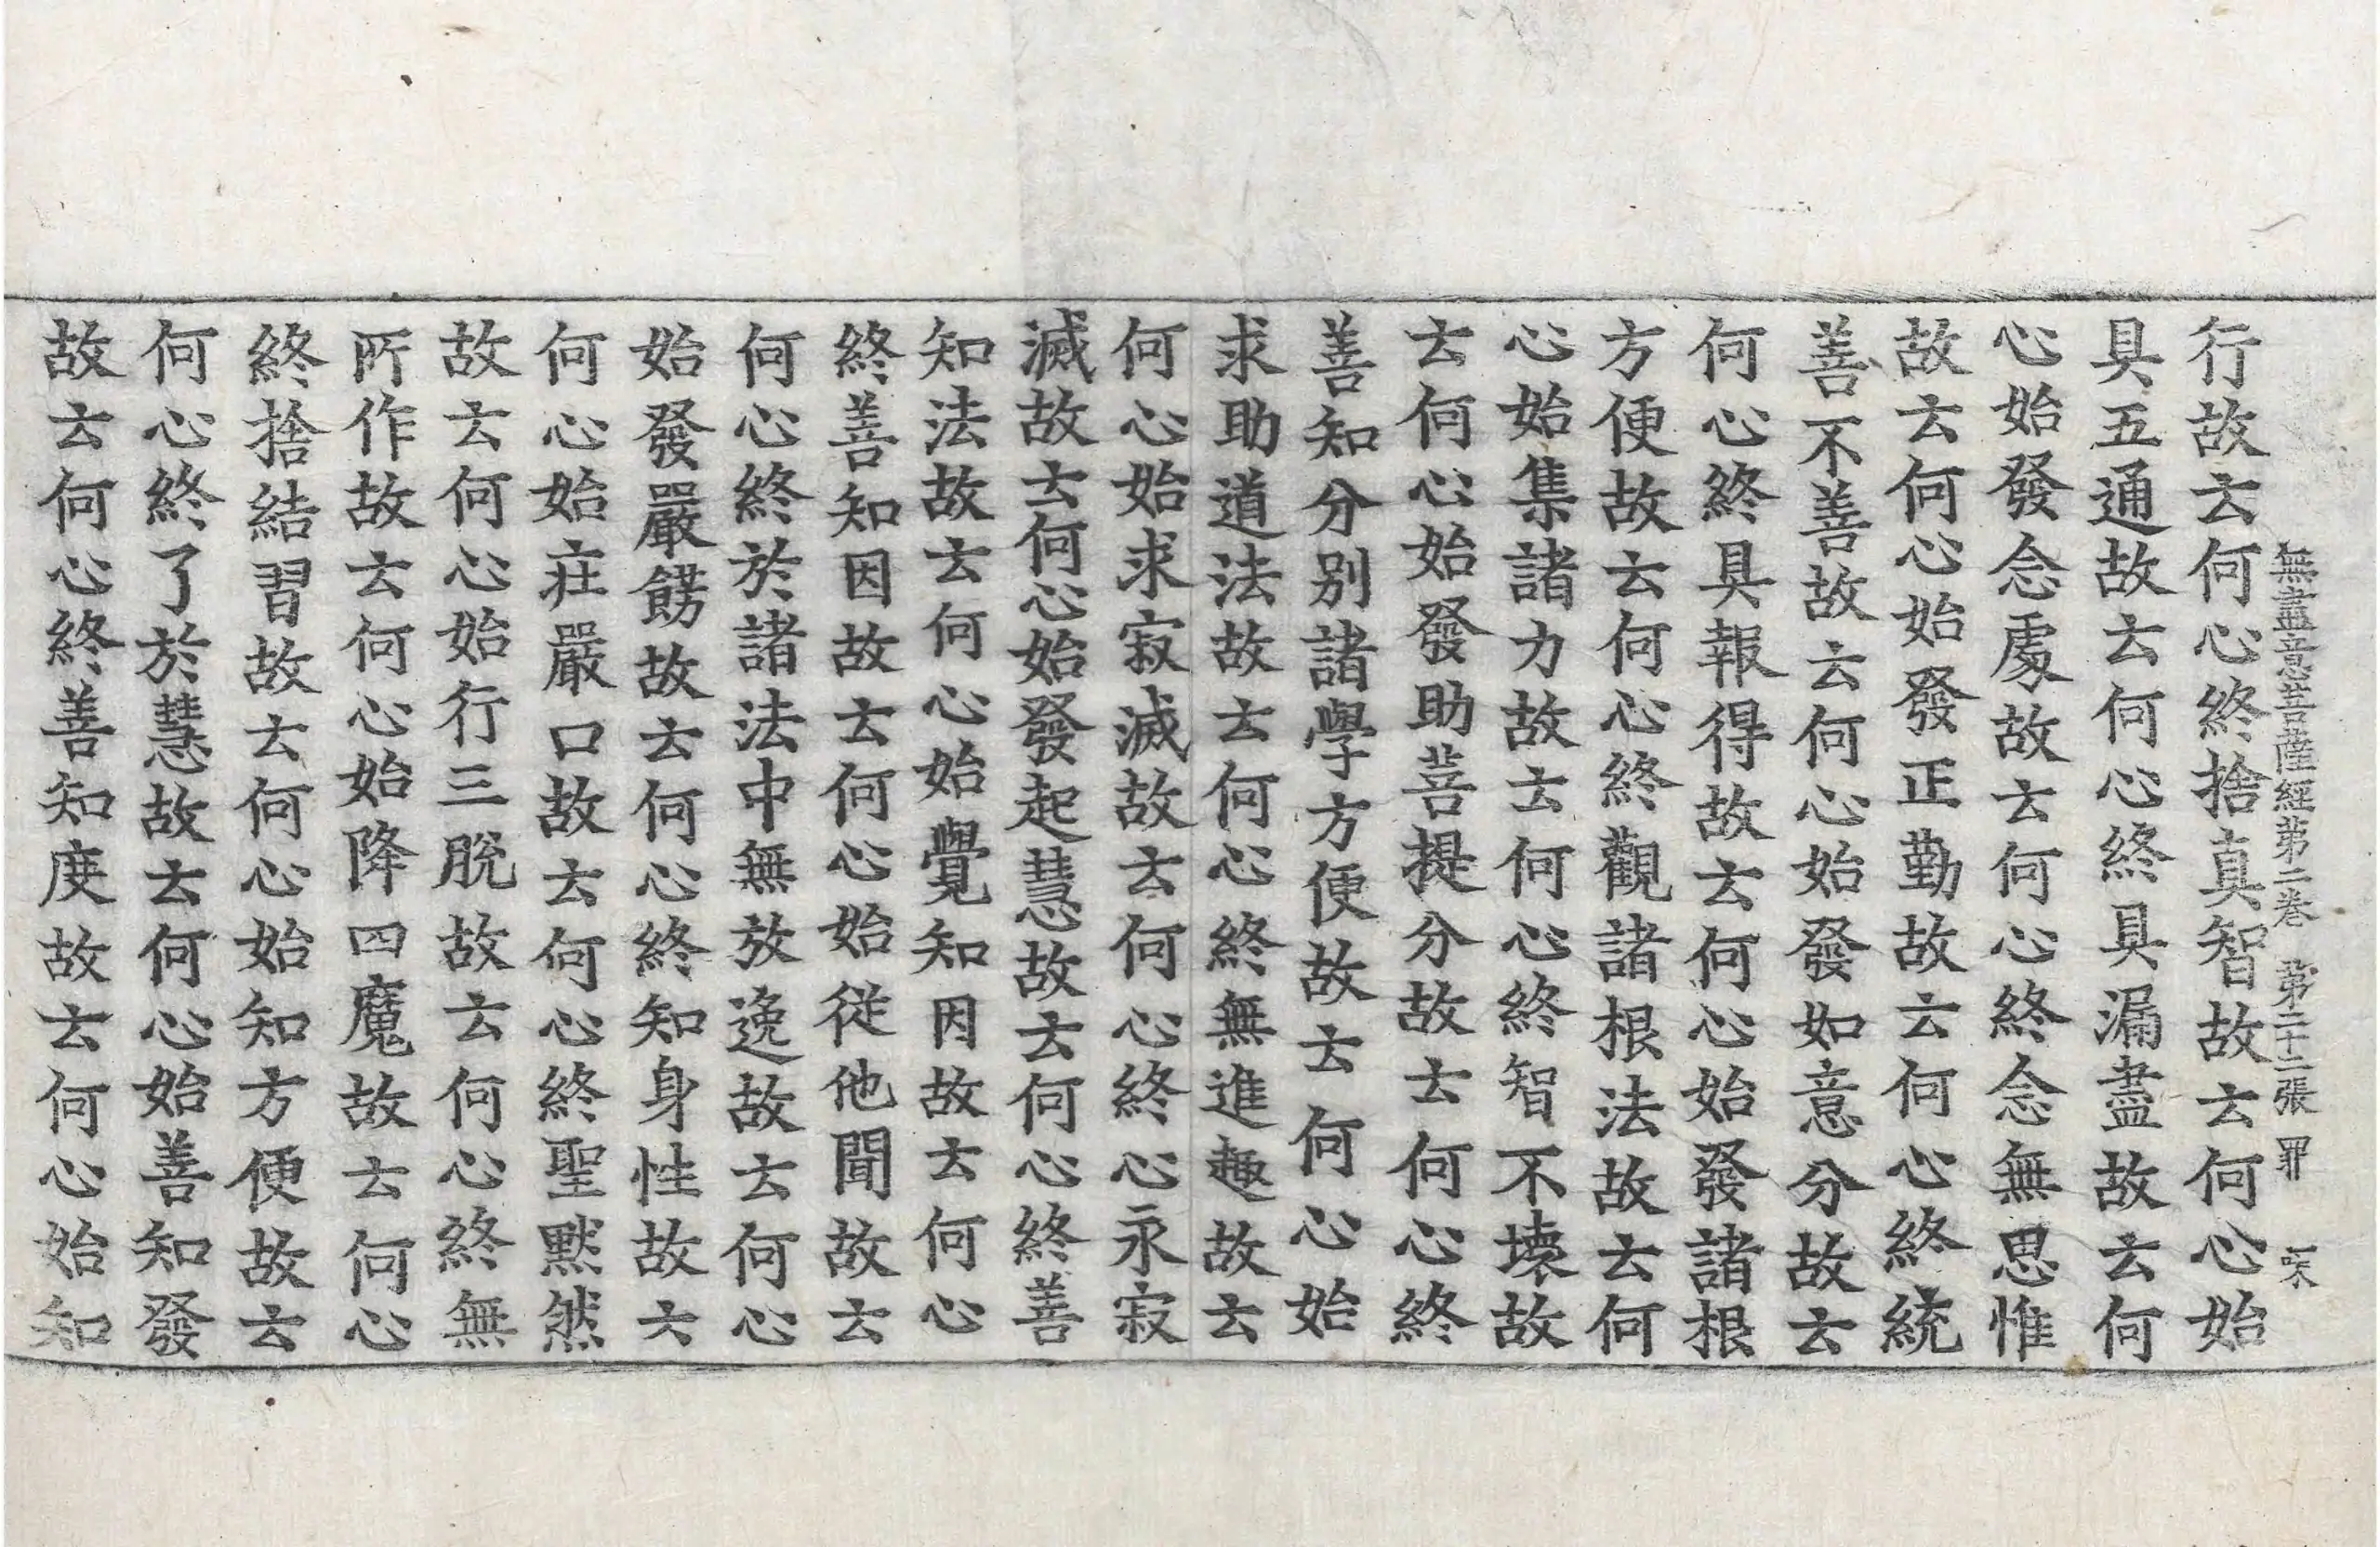 無盡意菩薩經第二卷 第二十二張 罪
行故云何心終捨真智故云何心始
具五通故云何心終具漏盡故云何
心始發念處故云何心終念無思惟
故云何心始發正勤故云何心終統
善不善故云何心始發如意分故云
何心終具報得故云何心始發諸根
方便故云何心終觀諸根法故云何
心始集諸力故云何心終智不壞故
云何心始發助菩提分故云何心終
善知分別諸學方便故云何心始
求助道法故云何心終無進趣故云
何心始求寂滅故云何心終心永寂
滅故云何心始發起慧故云何心終善
知法故云何心始覺知因故云何心
終善知因故云何心始從他聞故云
何心終於諸法中無放逸故云何心
始發嚴餝故云何心終知身性故云
何心始莊嚴口故云何心終聖默然
故云何心始行三脫故云何心終無
所作故云何心始降四魔故云何心
終捨結習故云何心始知方便故云
何心終了於慧故云何心始善知發
故云何心終善知度故云何心始知